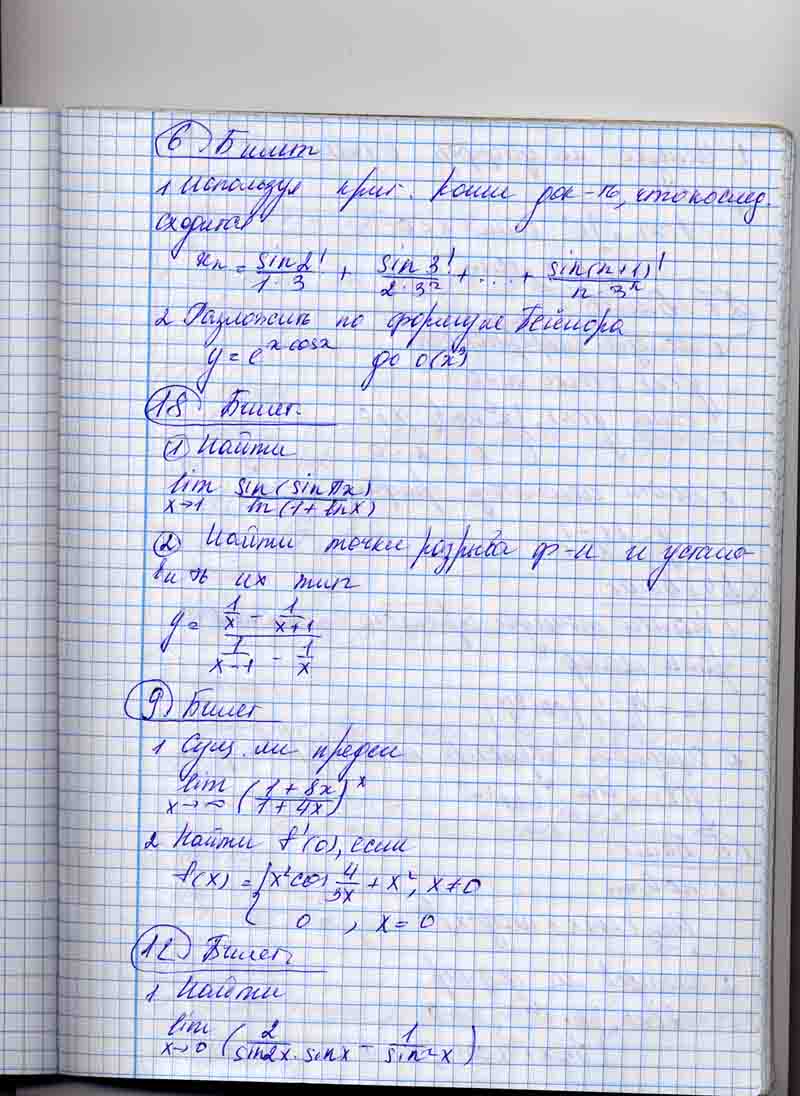 6) Билет
1 Используя крит. Коши док-ть, что послед.
сходится
xₙ = sin2!/(1·3) + sin3!/(2·3²) + ... + sin(n+1)!/(n·3ⁿ)
2 Разложить по формуле Тейлора
y = e^(x cosx) до o(x³)
18. Билет.
1 Найти
lim x→1 sin(sin πx)/ln(1+lnx)
2 Найти точки разрыва ф-и и устано-
вить их тип
y = (1/x - 1/(x+1))/(1/(x-1) - 1/x)
9) Билет
1 Сущ. ли предел
lim x→∞ ((1+8x)/(1+4x))^x
2 Найти f'(0), если
f(x) = { x²cos 4/(3x) + x², x≠0
{ 0, x=0
12) Билет.
1 Найти
lim x→0 (2/(sin2x·sinx) - 1/sin²x)